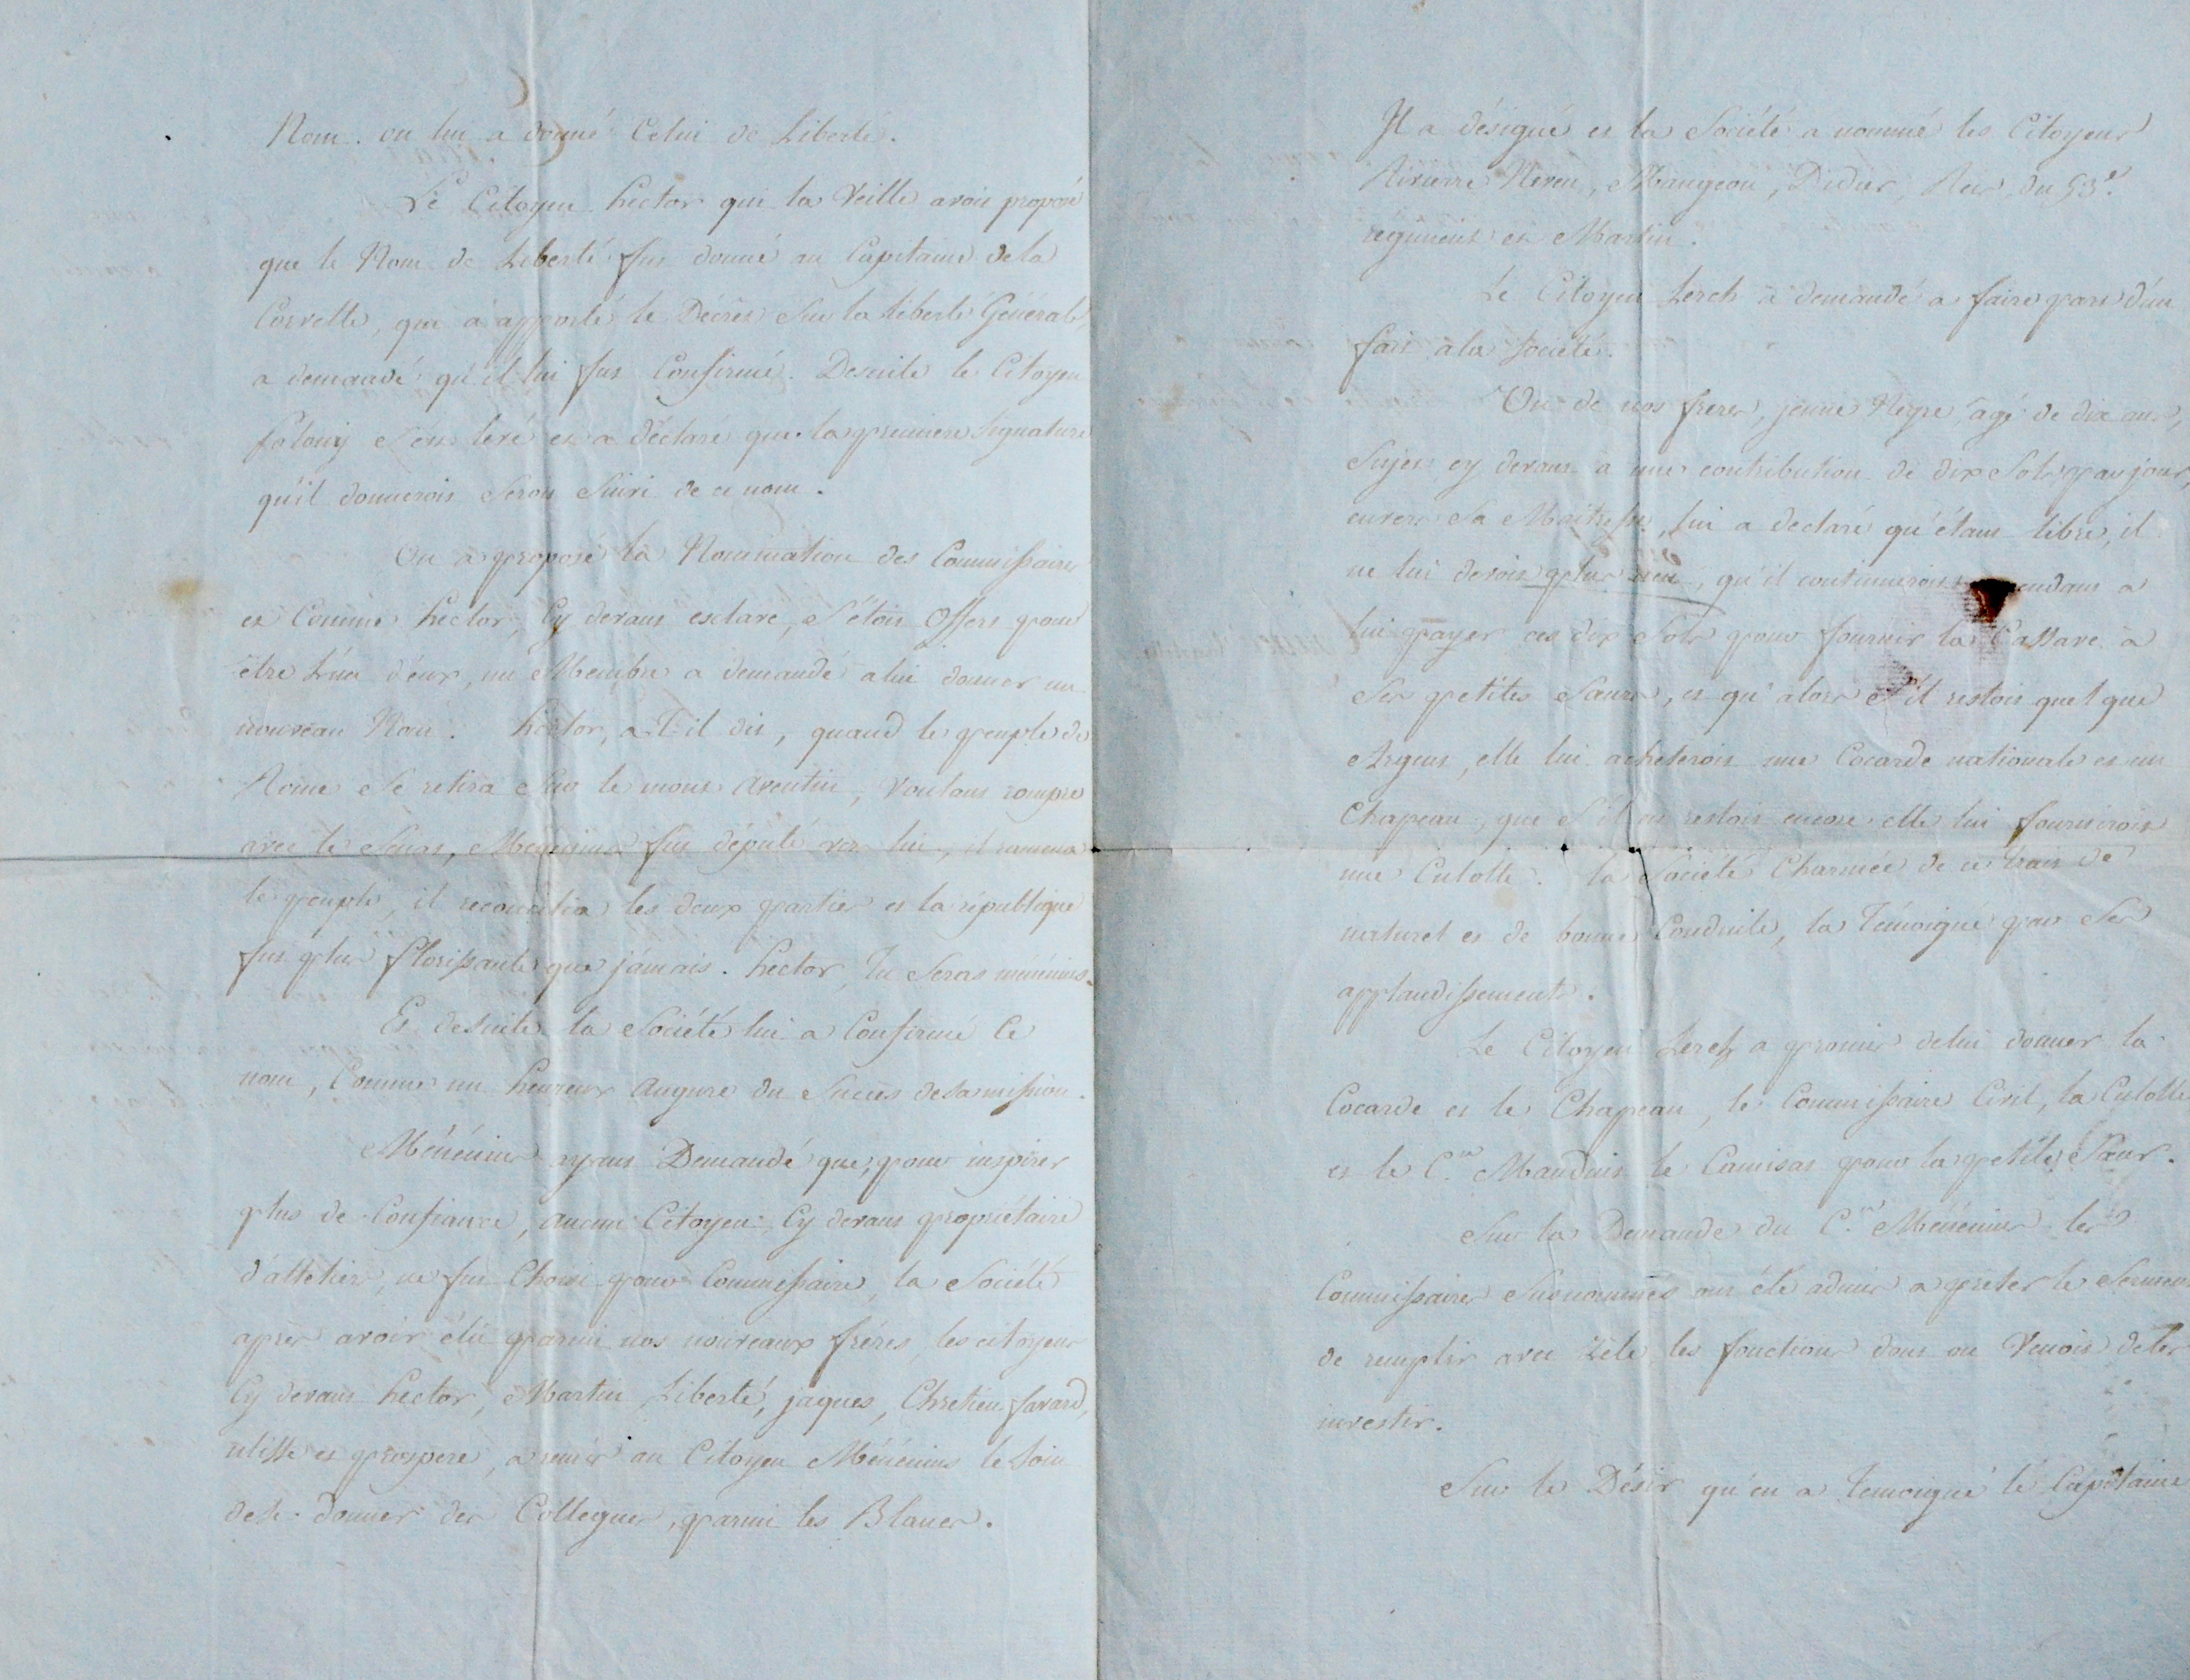 Nom. on lui a donné Celui de Liberté.
Le Citoyen hector qui la Veille avoit proposé
que le Nom de Liberté fut donné au Capitaine de la
Corvette, qui a apporté le Décret Sur la liberté Générale,
a demandé qu'il lui fut Confirmé. Desuite le Citoyen
S'est levé et a déclaré que la premiere Signature
qu'il donneroit Seroit Suivi de ce nom.
On a proposé la Nomination des Commissaires
et Comme hector, Cy devant esclave, S'étoit Offert pour
être L'un d'eux, un Membre a demandé a lui donner un
nouveau Nom. hector, a-T-il dit, quand le peuple de
Rome Se retira Sur le mont aventin, Voulant rompre
avec le Sénat, Ménénius fut député vers lui, il ramena
le peuple, il reconcilia les deux parties et la république
fut plus florissante que jámais. hector, Tu Seras ménénius.
Et desuite la Société lui a Confirmé Ce
nom, Comme un heureux Augure du Succès de sa mission.
Ménénius ayant Demandé que, pour inspirer
plus de Confiance, aucun Citoyen Cy devant propriétaire
d'attelier, ne fut Choisi pour Commissaire, la Société
après avoir élu parmi nos nouveaux fréres, les citoyens
Cy devant hector, Martin, Liberté, jaques, Chretien, favard,
ulisse et prospere, a remis au Citoyen Ménénius le Soin
de Se donner des Collegues, parmi les Blancs.
Il a désigné et la Société a nommé les Citoyens
Neveu, Maugeon, Didier, du 53e.
régiment et Martin.
Le Citoyen Lerch a demandé a faire part d'un
fait à la Société.
Un de nos freres, jeune Negre, agé de dix ans,
Sujet cy devant a une contribution de dix Sols par jour,
envers Sa Maitresse, lui a declaré qu'étant libre, il
ne lui devoit plus rien, qu'il continueroit a
lui payer ces dix Sols pour fournir la Cassave à
Ses petites Sœurs, et qu'alors S'il restoit quelque
Argent, elle lui acheteroit une Cocarde nationale et un
Chapeau, que S'il en restoit encore elle lui fourniroit
une Culotte. la Société Charmée de ce trait de
naturel et de bonne Conduite, la Témoigné par Ses
applaudissements.
Le Citoyen Lerch a promis de lui donner la
Cocarde et le Chapeau, le Commissaire Civil, la Culotte
et le C.en Mauduit le Camisas pour la petite Sœur.
Sur la Demande du C.en Ménénius les
Commissaires Susnommés ont été admis a preter le Serment
de remplir avec zèle les fonctions dont on Venoit de les
investir.
Sur le Désir qu'en a Temoigné le Capitaine